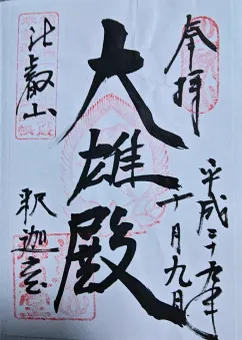 奉拝
平成
十月九日
大雄殿
比叡山
釈迦堂